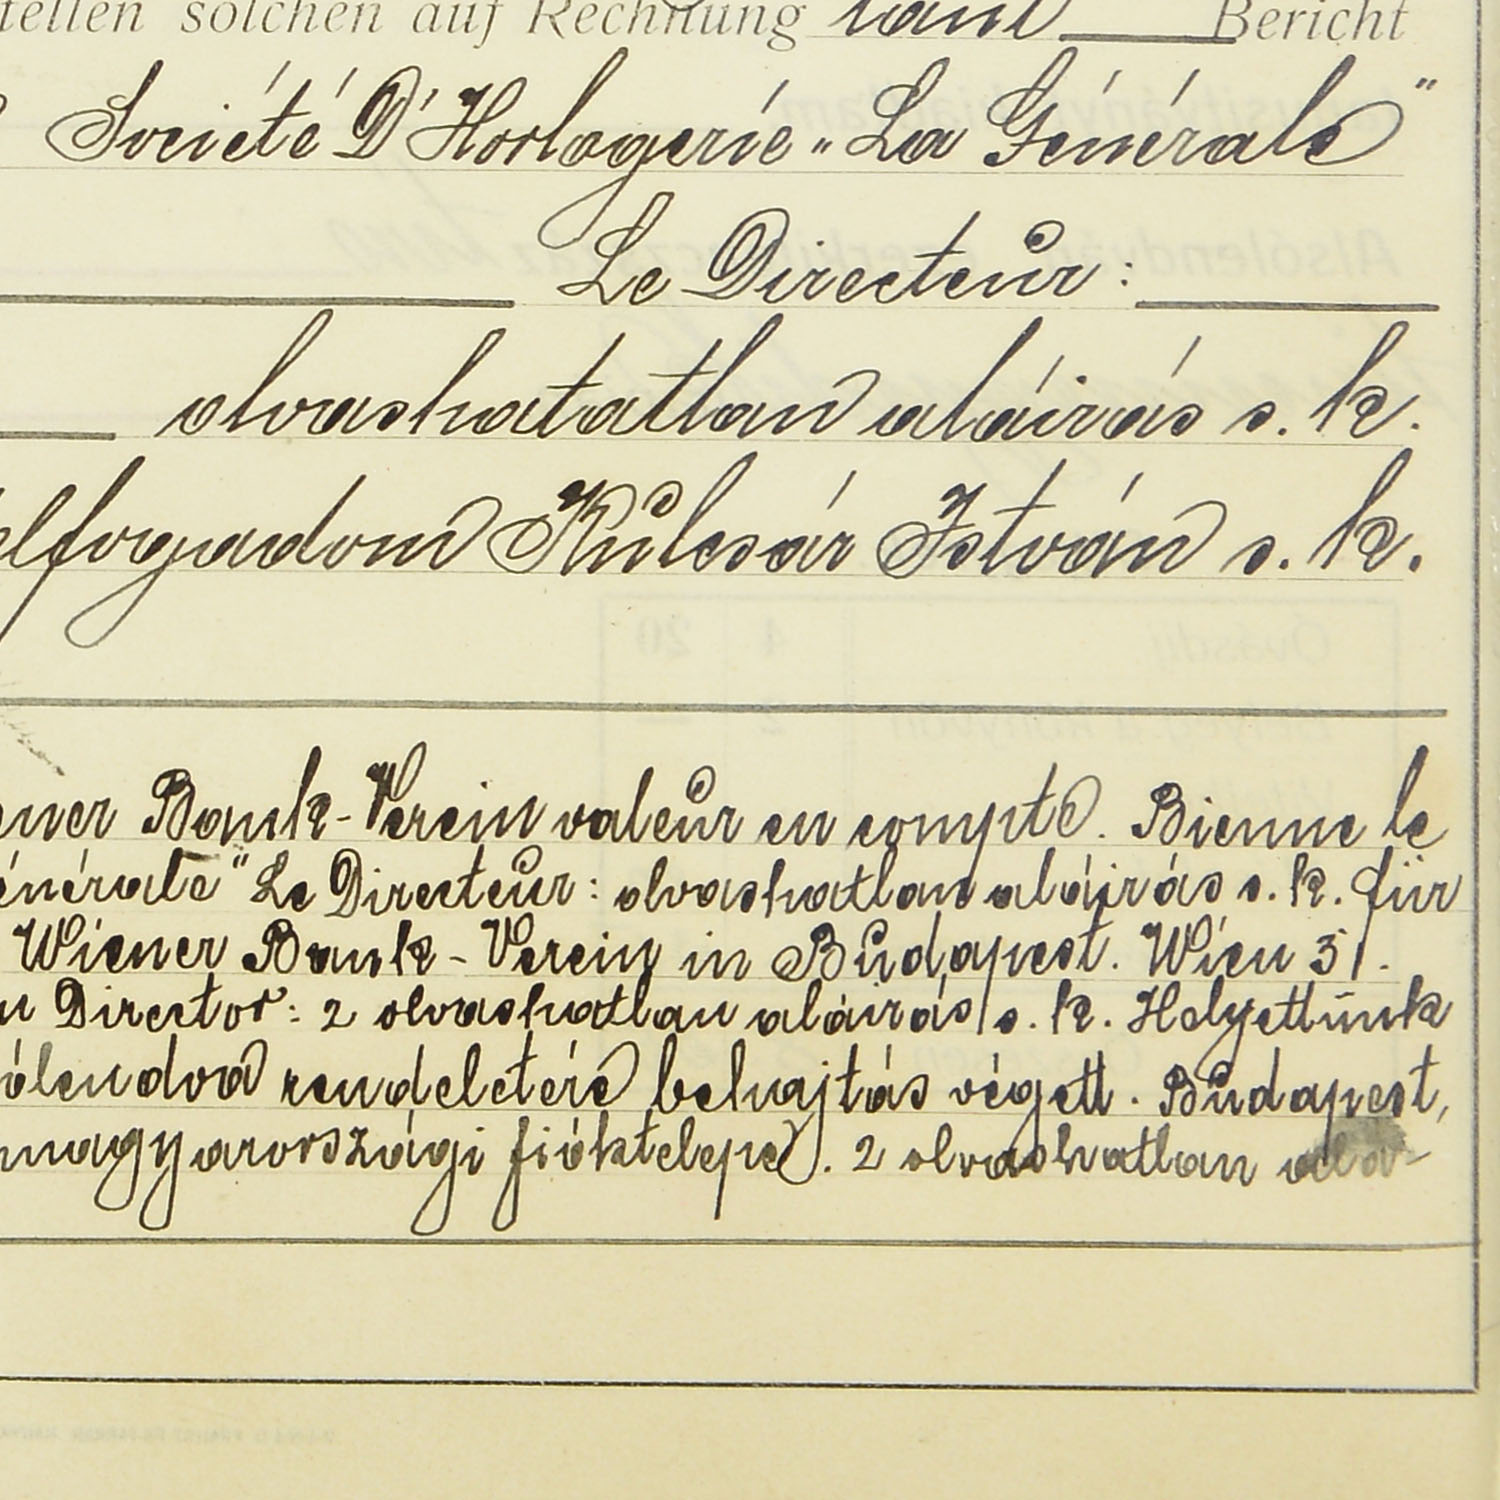 tellen solchen auf Rechnung laut Bericht
Société D'Horlogerie „La Générale"
Le Directeur:
olvashatatlan aláirás s. k.
elfogadom Kulcsár István s. k.
ener Bank-Verein valeur en compte. Bienne le
énérale" Le Directeur: olvashatlan aláirás s. k. für
Wiener Bank-Verein in Budapest. Wien 31.
Director: 2 olvashatlan aláirás s. k. Helyettünk
ólendva rendeletére behajtás végett. Budapest,
magyarországi fióktelepe. 2 olvashatlan alá-